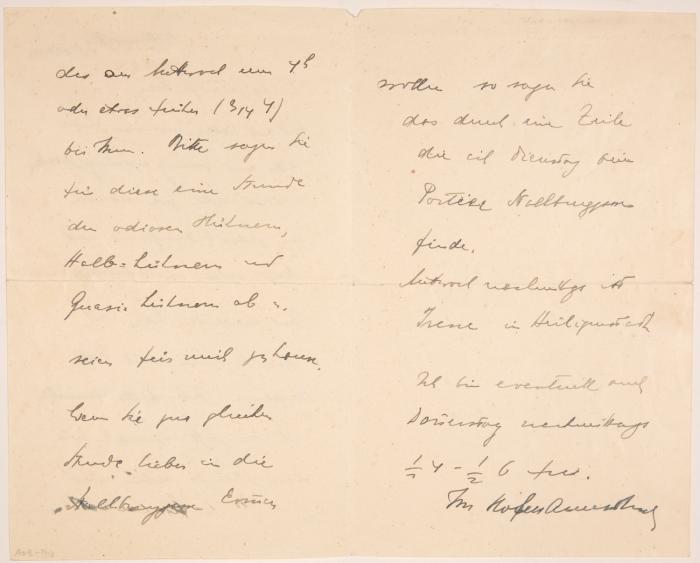 des am Mittwoch um 4h
oder etwas früher (3/4 4)
bei Ihnen. Bitte sagen Sie
für diese eine Stunde
den odiosen Hühnern,
Halb=Hühnern und
Quasi Hühnern ab u.
seien für mich zuhause.
Wenn Sie zur gleichen
Stunde lieber in die
wollen so sagen Sie
das durch eine Zeile
die ich Dienstag beim
Portier
finde.
Mittwoch nachmittgs ist
Irene in Heiligenstadt
Ich bin eventuell auch
Donnerstag nachmittags
1/2 4 - 1/2 6 frei.
Ihr Hofmannsthal